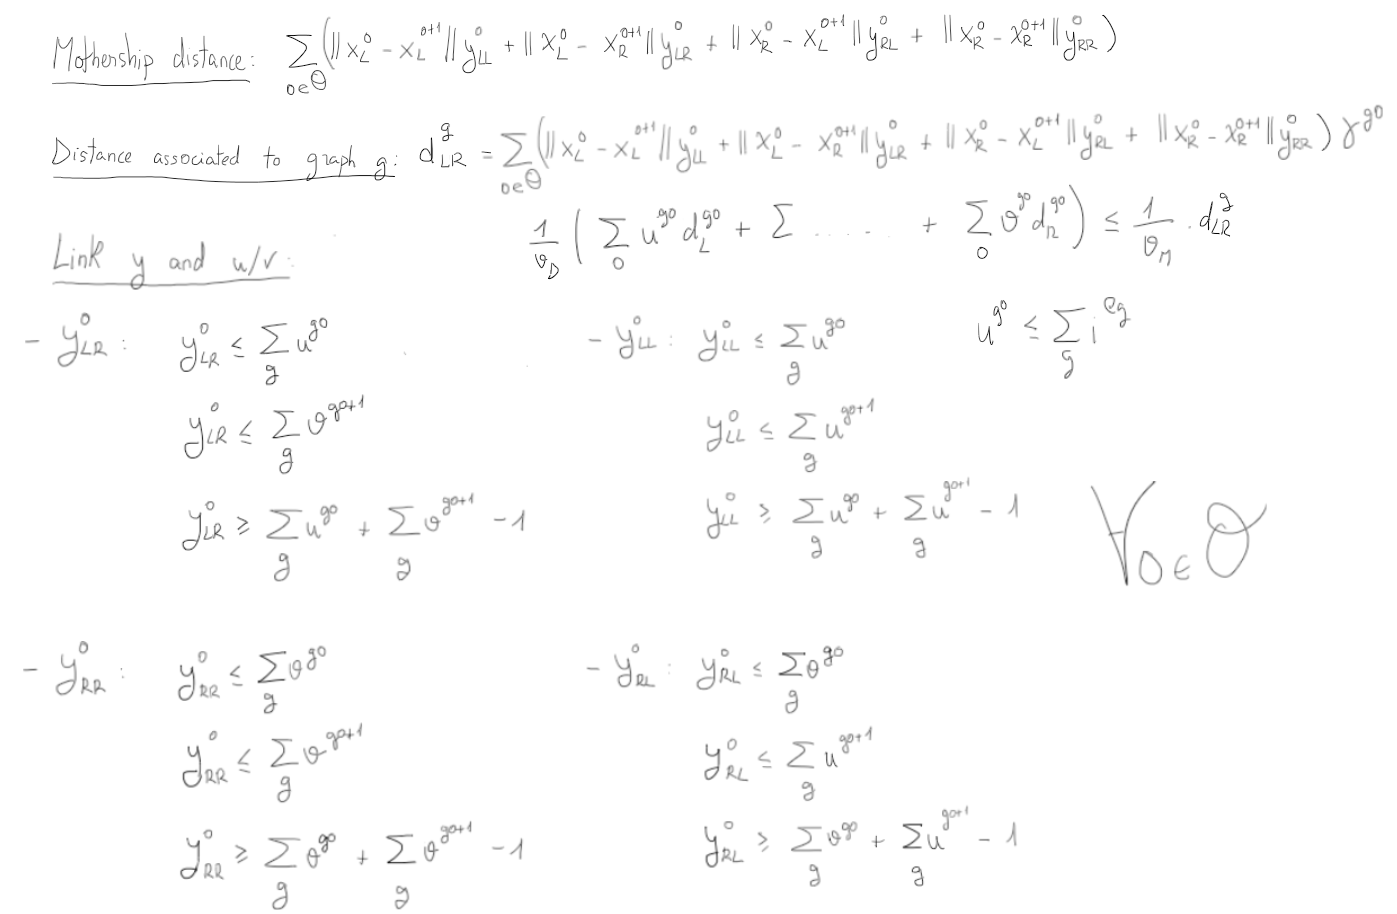 Mothership distance: ∑_{o∈Θ} (||x_L^o − x_L^{o+1}|| y_{LL}^o + ||x_L^o − x_R^{o+1}|| y_{LR}^o + ||x_R^o − x_L^{o+1}|| y_{RL}^o + ||x_R^o − x_R^{o+1}|| y_{RR}^o)
Distance associated to graph g: d_{LR}^g = ∑_{o∈Θ} (||x_L^o − x_L^{o+1}|| y_{LL}^o + ||x_L^o − x_R^{o+1}|| y_{LR}^o + ||x_R^o − x_L^{o+1}|| y_{RL}^o + ||x_R^o − x_R^{o+1}|| y_{RR}^o) γ^{go}
1/v_D (∑_o u^{go} d_L^{go} + ∑ ..... + ∑_o v^{go} d_R^{go}) ≤ 1/v_M · d_{LR}^g
Link y and u/v:
u^{go} ≤ ∑_g i^{eg}
- y_{LR}^o : y_{LR}^o ≤ ∑_g u^{go}
y_{LR}^o ≤ ∑_g v^{go+1}
y_{LR}^o ≥ ∑_g u^{go} + ∑_g v^{go+1} − 1
- y_{LL}^o : y_{LL}^o ≤ ∑_g u^{go}
y_{LL}^o ≤ ∑_g u^{go+1}
y_{LL}^o ≥ ∑_g u^{go} + ∑_g u^{go+1} − 1
∀ o ∈ O
- y_{RR}^o : y_{RR}^o ≤ ∑_g v^{go}
y_{RR}^o ≤ ∑_g v^{go+1}
y_{RR}^o ≥ ∑_g v^{go} + ∑_g v^{go+1} − 1
- y_{RL}^o : y_{RL}^o ≤ ∑_g v^{go}
y_{RL}^o ≤ ∑_g u^{go+1}
y_{RL}^o ≥ ∑_g v^{go} + ∑_g u^{go+1} − 1